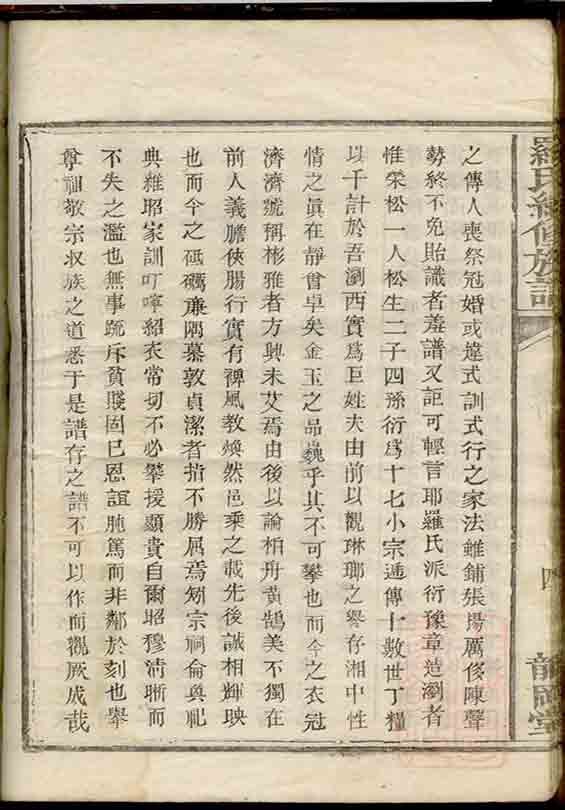 羅氏續修族譜
四
之傳人喪祭冠婚或違式訓式行之家法雖鋪張揚厲侈陳聲
勢終不免貽識者羞譜又詎可輕言耶羅氏派衍豫章造瀏者
惟榮松一人松生二子四孫衍爲十七小宗遞傳十數世丁糧
以千計於吾瀏西實爲巨姓夫由前以觀琳瑯之譽存湘中性
情之眞在靜會卓矣金玉之品巍乎其不可攀也而今之衣冠
濟濟號稱彬雅者方興未艾焉由後以論柏舟黃鵠美不獨在
前人義膽俠腸行實有裨風教煥然邑乘之載先後誠相輝映
也而今之砥礪廉隅慕敦貞潔者指不勝屈焉矧宗祠倫與祀
典維昭家訓叮嚀紹衣常切不必攀援顯貴自爾昭穆淸晰而
不失之濫也無事疏斥貧賤固已恩誼肫篤而非鄰於刻也舉
尊祖敬宗收族之道悉于是譜存之譜不可以作而觀厥成哉